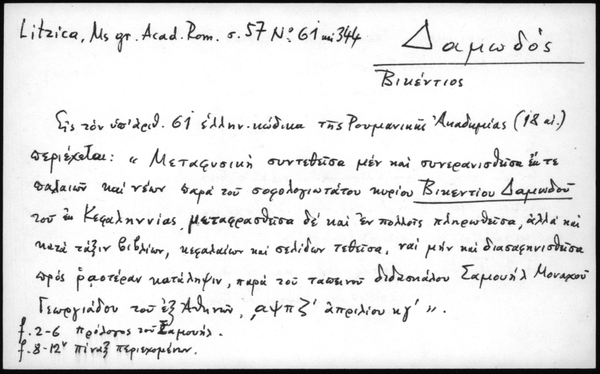 Litzica, Ms gr. Acad. Rom. σ. 57 No 61 και 344
Δαμωδός
Βικέντιος
Εις τον υπ' αριθ. 61 ελλην. κώδικα της Ρουμανικής Ακαδημίας (18 αι.)
περιέχεται: " Μεταφυσική συντεθείσα μέν και συνερανισθείσα έκ τε
παλαιών και νέων παρά του σοφολογιωτάτου κυρίου Βικεντίου Δαμωδού
του εκ Κεφαλληνίας, μεταφρασθείσα δέ και εν πολλοίς πληρωθείσα, αλλά και
κατά τάξιν βιβλίων, κεφαλαίων και σελίδων τεθείσα, ναί μήν και διασαφηνισθείσα
πρός ραοτέραν κατάληψιν, παρά του ταπεινού διδασκάλου Σαμουήλ Μοναχού
Γεωργιάδου του εξ Αθηνών, ͵αψπζ' απριλίου κγ' ".
f. 2-6 πρόλογος του Σαμουήλ.
f. 8-12v πίναξ περιεχομένων.